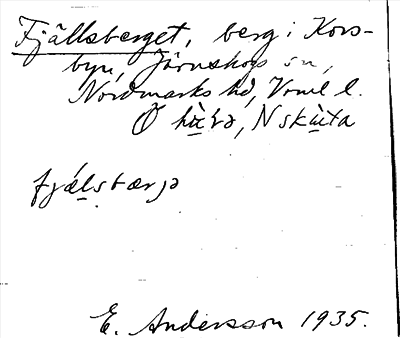 Fjällsberget, berg i Kors-
byn, Järnskogs sn,
Nordmarks hd, Vrml l.
Ö hùvə, N skùta
fjǽlsbærjə
E. Andersson 1935.